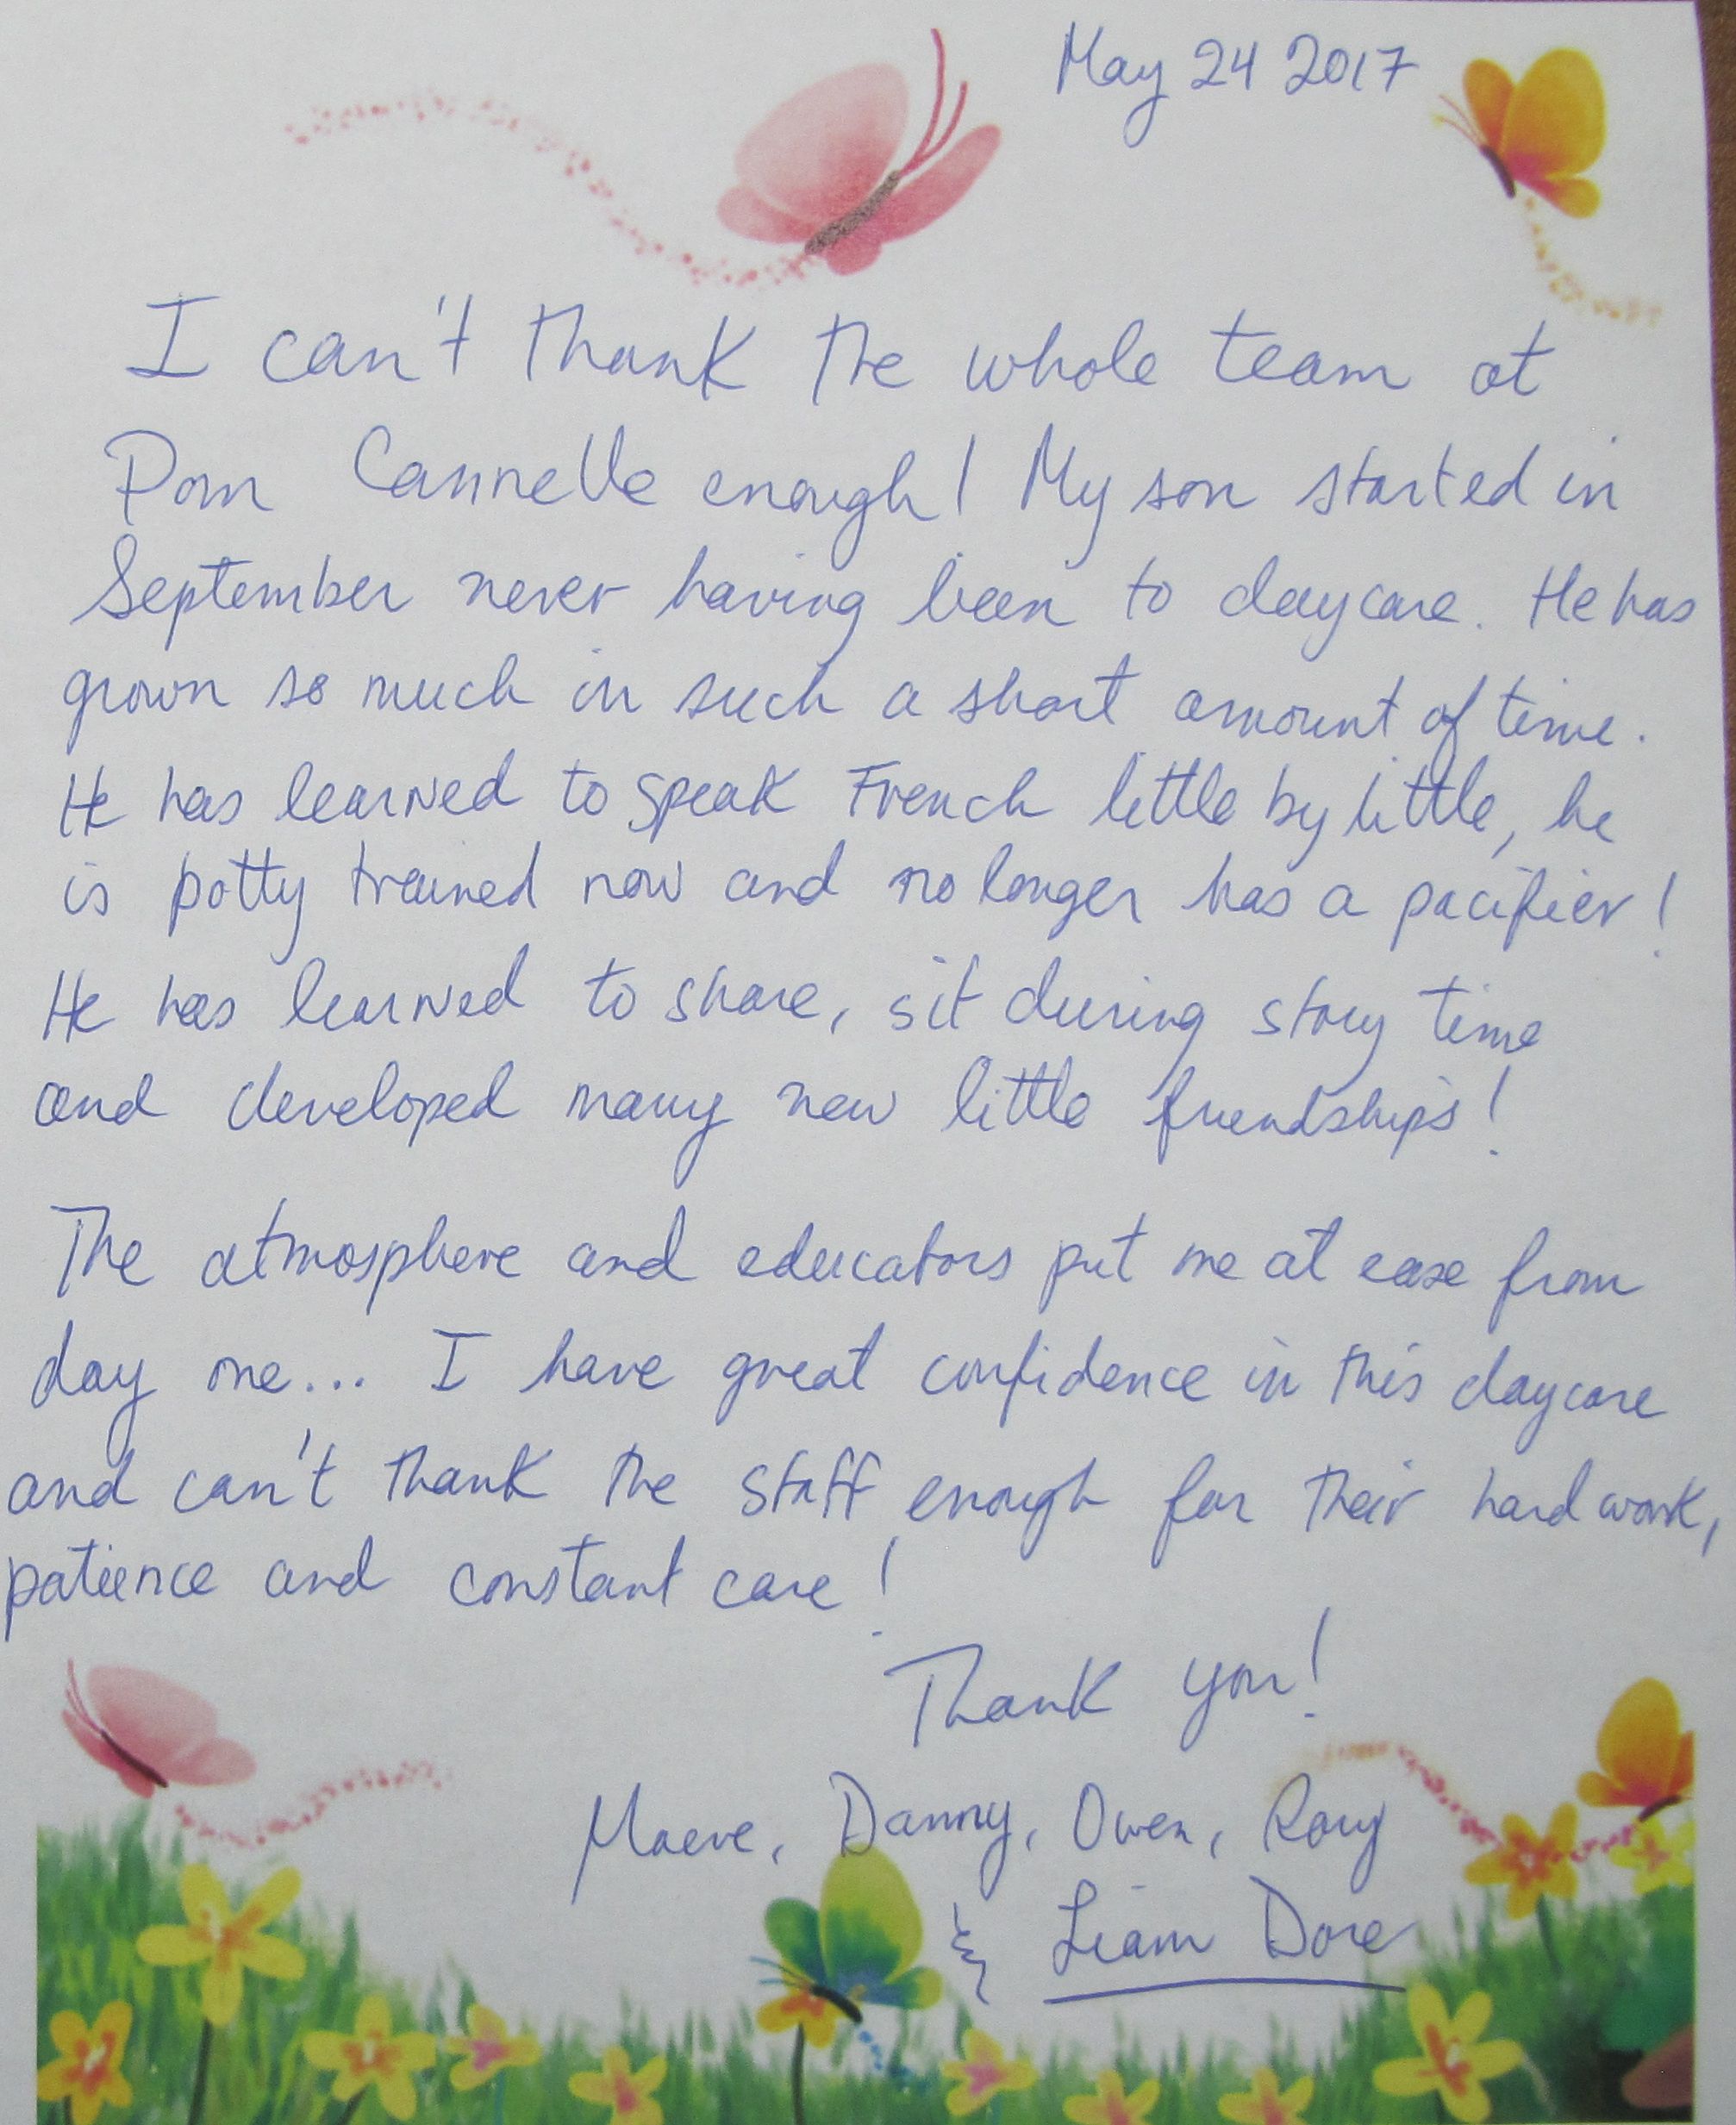 May 24 2017
I can't thank the whole team at
Pom Cannelle enough! My son started in
September never having been to daycare. He has
grown so much in such a short amount of time.
He has learned to speak French little by little, he
is potty trained now and no longer has a pacifier!
He has learned to share, sit during story time
and developed many new little friendships!
The atmosphere and educators put me at ease from
day one... I have great confidence in this daycare
and can't thank the staff enough for their hard work,
patience and constant care!
Thank you!
Maeve, Danny, Owen, Rory
& Liam Dore